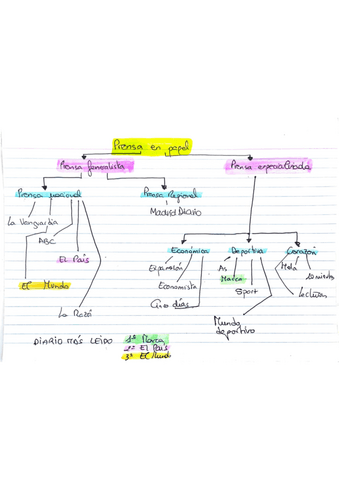 Prensa en papel
Prensa generalista
Prensa especializada
Prensa nacional
Prensa Regional
La Vanguardia
Madrid Diario
ABC
El País
El Mundo
La Razó
Económica
Deportiva
Corazón
Expansión
As
Hola
Economista
Marca
20 minutos
Cinco días
Sport
Lecturas
Mundo
deportivo
DIARIO MÁS LEÍDO
1º Marca
2º El País
3º El Mundo